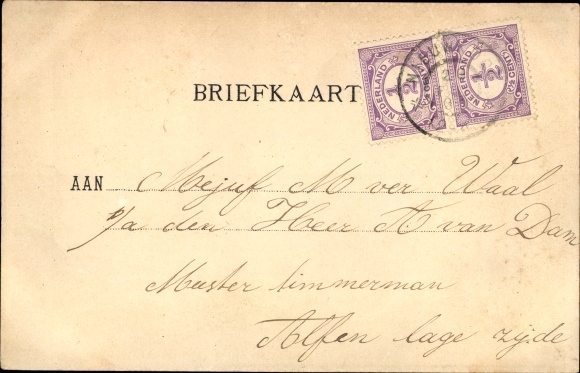 BRIEFKAART
½ NEDERLAND
½ NEDERLAND
AAN Mejuf M ver Waal
p/a den Heer A van Dam
Meester timmerman
Alfen lage zijde